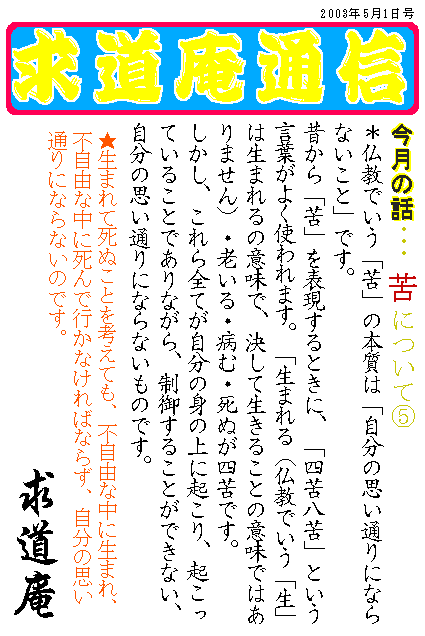 2003年5月1日号
求道庵通信
今月の話… 苦について⑤
＊仏教でいう「苦」の本質は「自分の思い通りになら
ないこと」です。
昔から「苦」を表現するときに、「四苦八苦」という
言葉がよく使われます。「生まれる（仏教でいう「生」
は生まれるの意味で、決して生きることの意味ではあ
りません）・老いる・病む・死ぬが四苦です。
しかし、これら全てが自分の身の上に起こり、起こっ
ていることでありながら、制御することができない、
自分の思い通りにならないものです。
★生まれて死ぬことを考えても、不自由な中に生まれ、
不自由な中に死んで行かなければならず、自分の思い
通りにならないのです。
求道庵